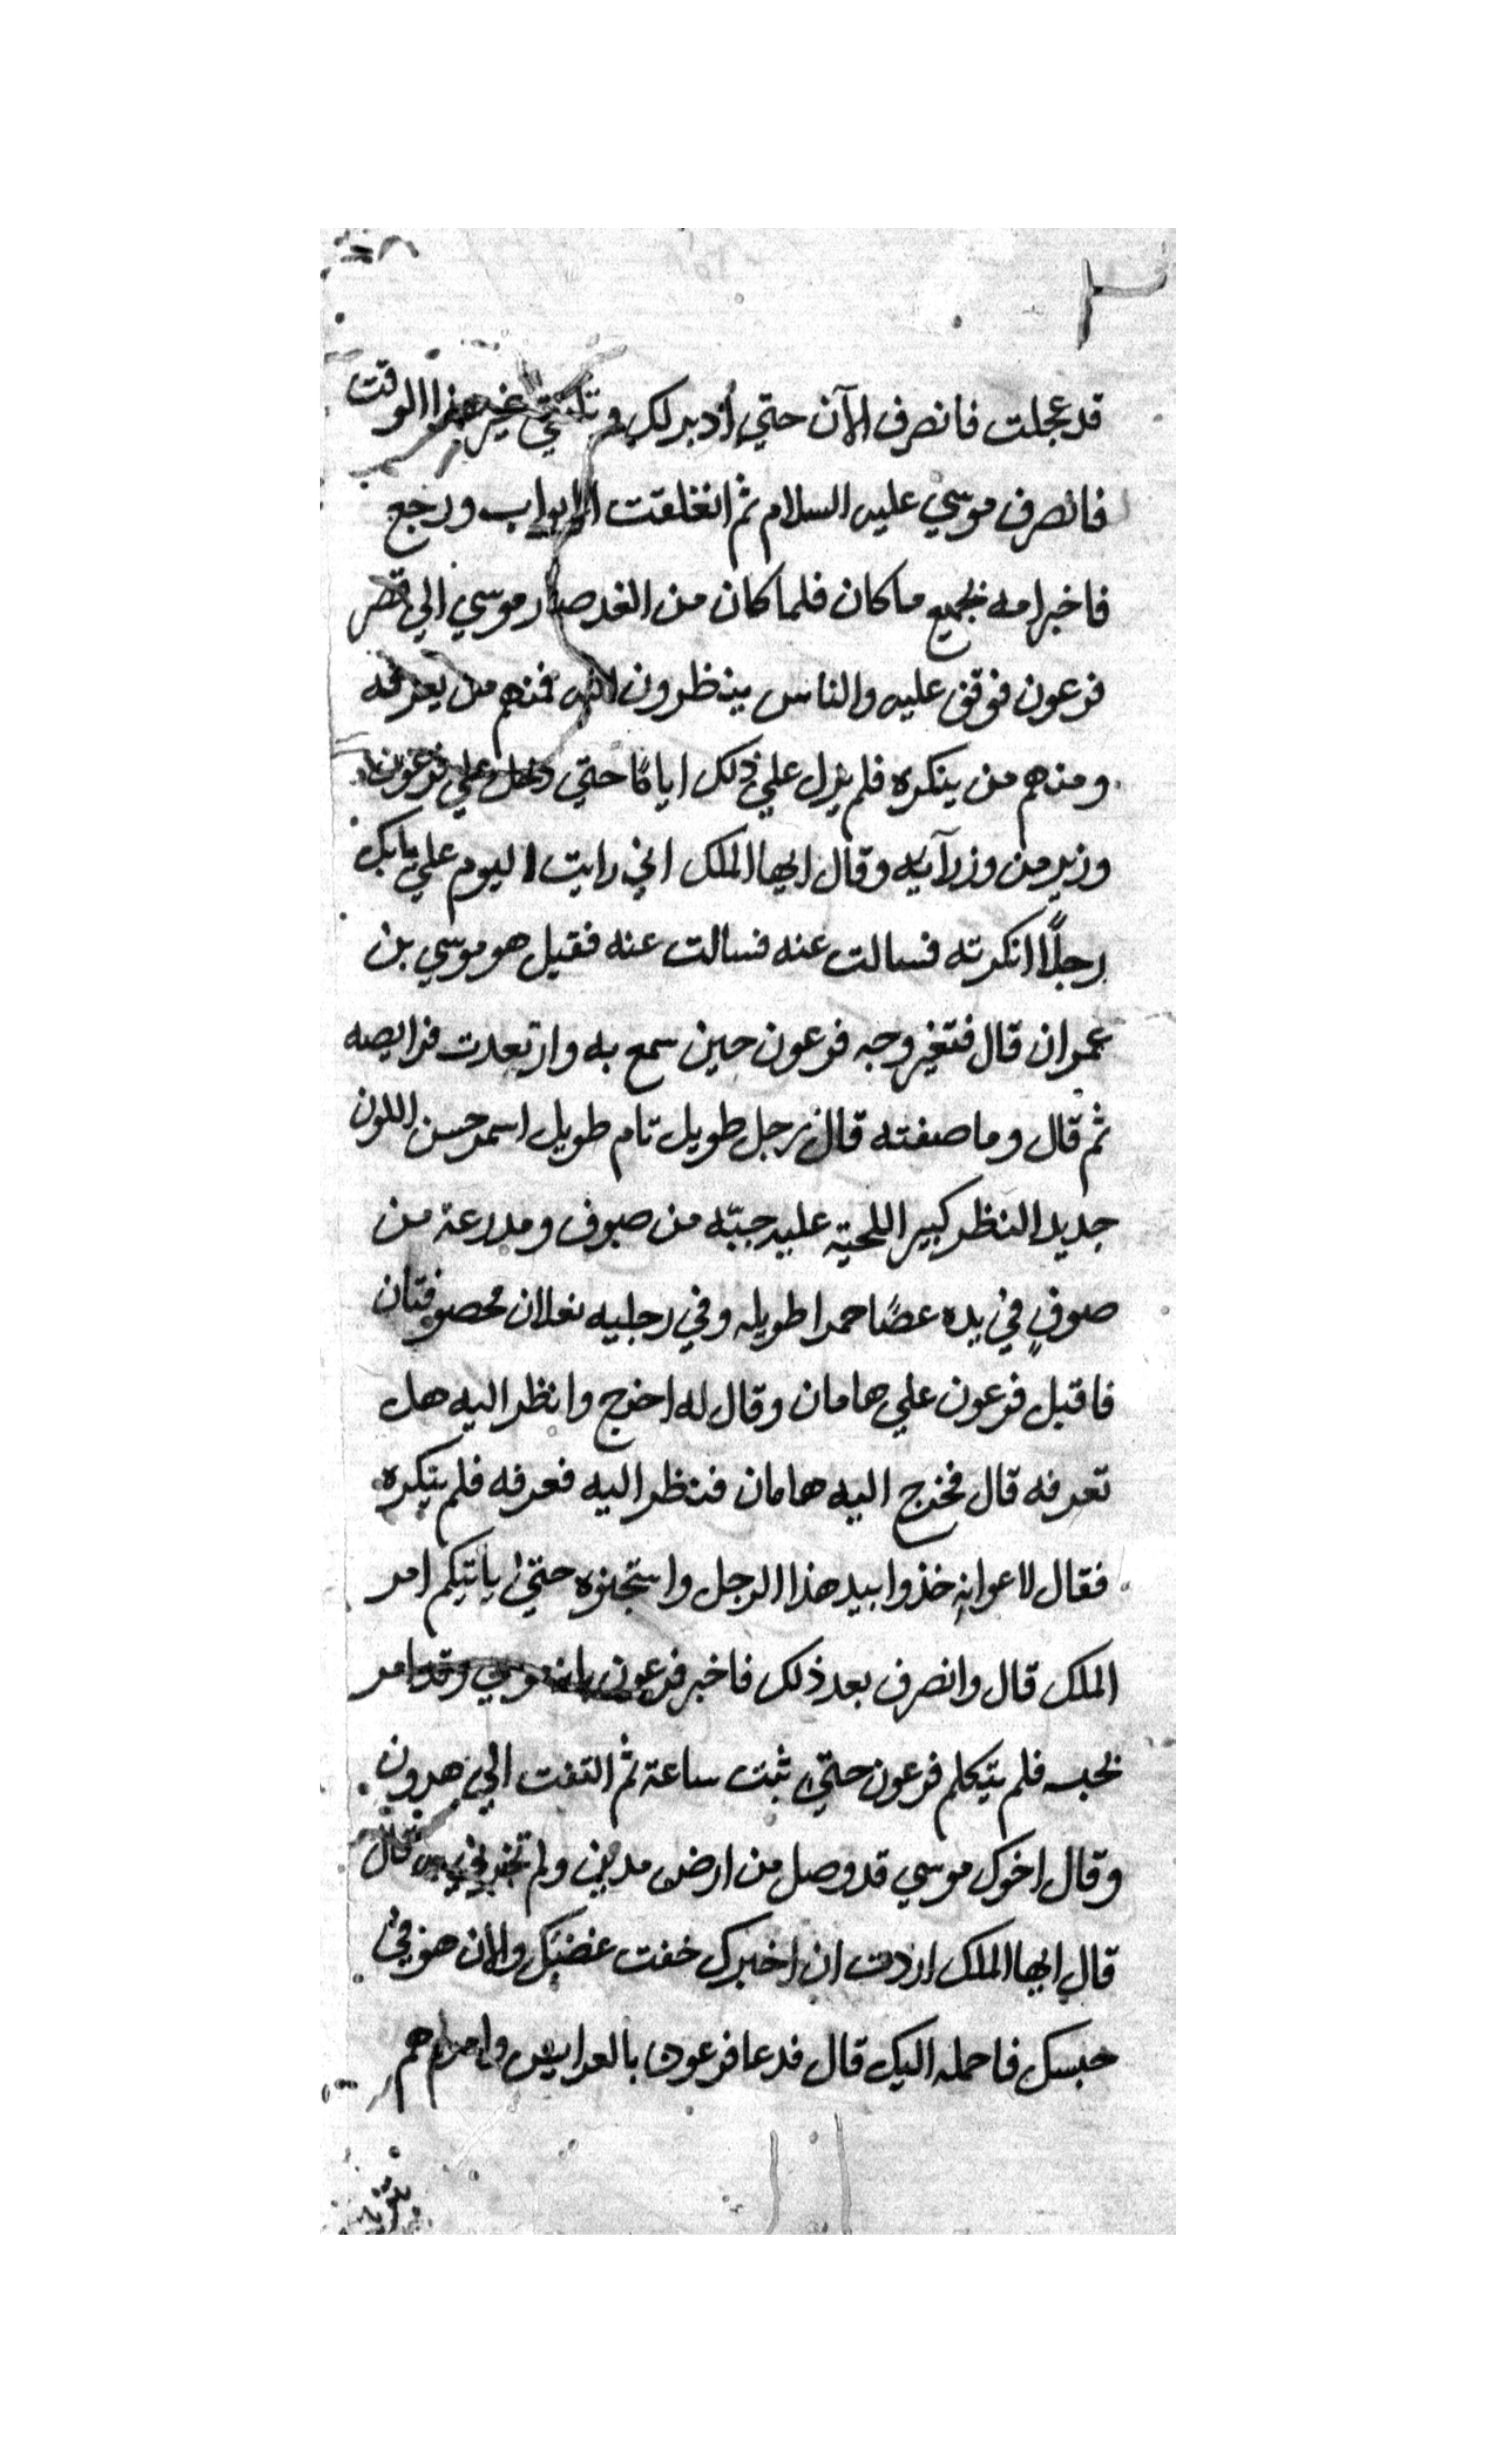 قد عجلت فانصرف الآن حتي أدبر لك و تاتيني غير هذا الوقت
فانصرف موسي عليه السلام ثم انغلقت الابواب ورجع
فاخبر امه بجميع ماكان فلما كان من الغد صار موسي الي قصر
فرعون فوقف عليه والناس ينظرون اليه فمنهم من يعرفه
ومنهم من ينكره فلم يزل علي ذلك ايامًا حتي دخل علي فرعون
وزير من وزرآيه وقال ايها الملك اني رايت اليوم علي بابك
رجلًا انكرته فسالت عنه فسالت عنه فقيل هو موسي بن
عمران قال فتغير وجه فرعون حين سمع به وارتعدت فرايصه
ثم قال وما صفته قال رجل طويل تام طويل اسمر حسن اللون
جديد النظر كبير اللحية عليه جبّه من صوف ومدرعة من
صوفٍ في يده عصًا حمرا طويله وفي رجليه نعلان مخصوفتان
فاقبل فرعون علي هامان وقال له اخرج وانظر اليه هل
تعرفه قال فخرج اليه هامان فنظر اليه فعرفه فلم ينكره
فقال لاعوانه خذوا بيد هذا الرجل واسجنوه حتي ياتيكم امر
الملك قال وانصرف بعد ذلك فاخبر فرعون بانه موسي وقد امر
بحبسه فلم يتكلم فرعون حتي ثبت ساعة ثم التفت الي هرون
وقال اخوك موسي قد وصل من ارض مدين ولم تخبرني قال
قال ايها الملك اردت ان اخبرك خفت غضبك والان هو في
حبسك فاحمله اليك قال فدعا فرعون بالعرايس وامرهم